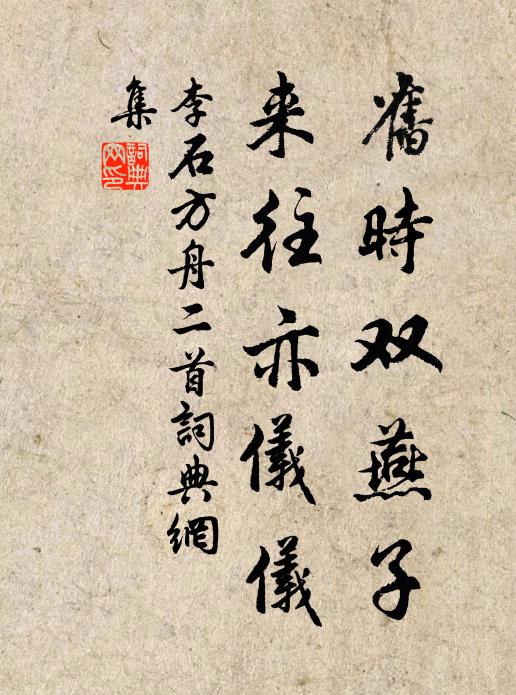 舊時双燕子
来往亦儀儀
李石方舟二首詞典網
集
詞典網印